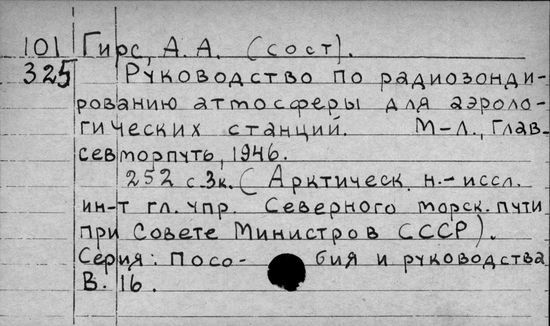 101 Гирс, А. А. (сост).
325 Руководство по радиозонди-
рованию атмосферы для аэроло-
гических станций. М-Л., Глав-
севморпуть, 1946.
252 с. 3к. (Арктическ. н.-иссл.
ин-т гл. упр. Северного морск. пути
при Совете Министров СССР).
Серия: Посо- бия и руководства
В. 16.